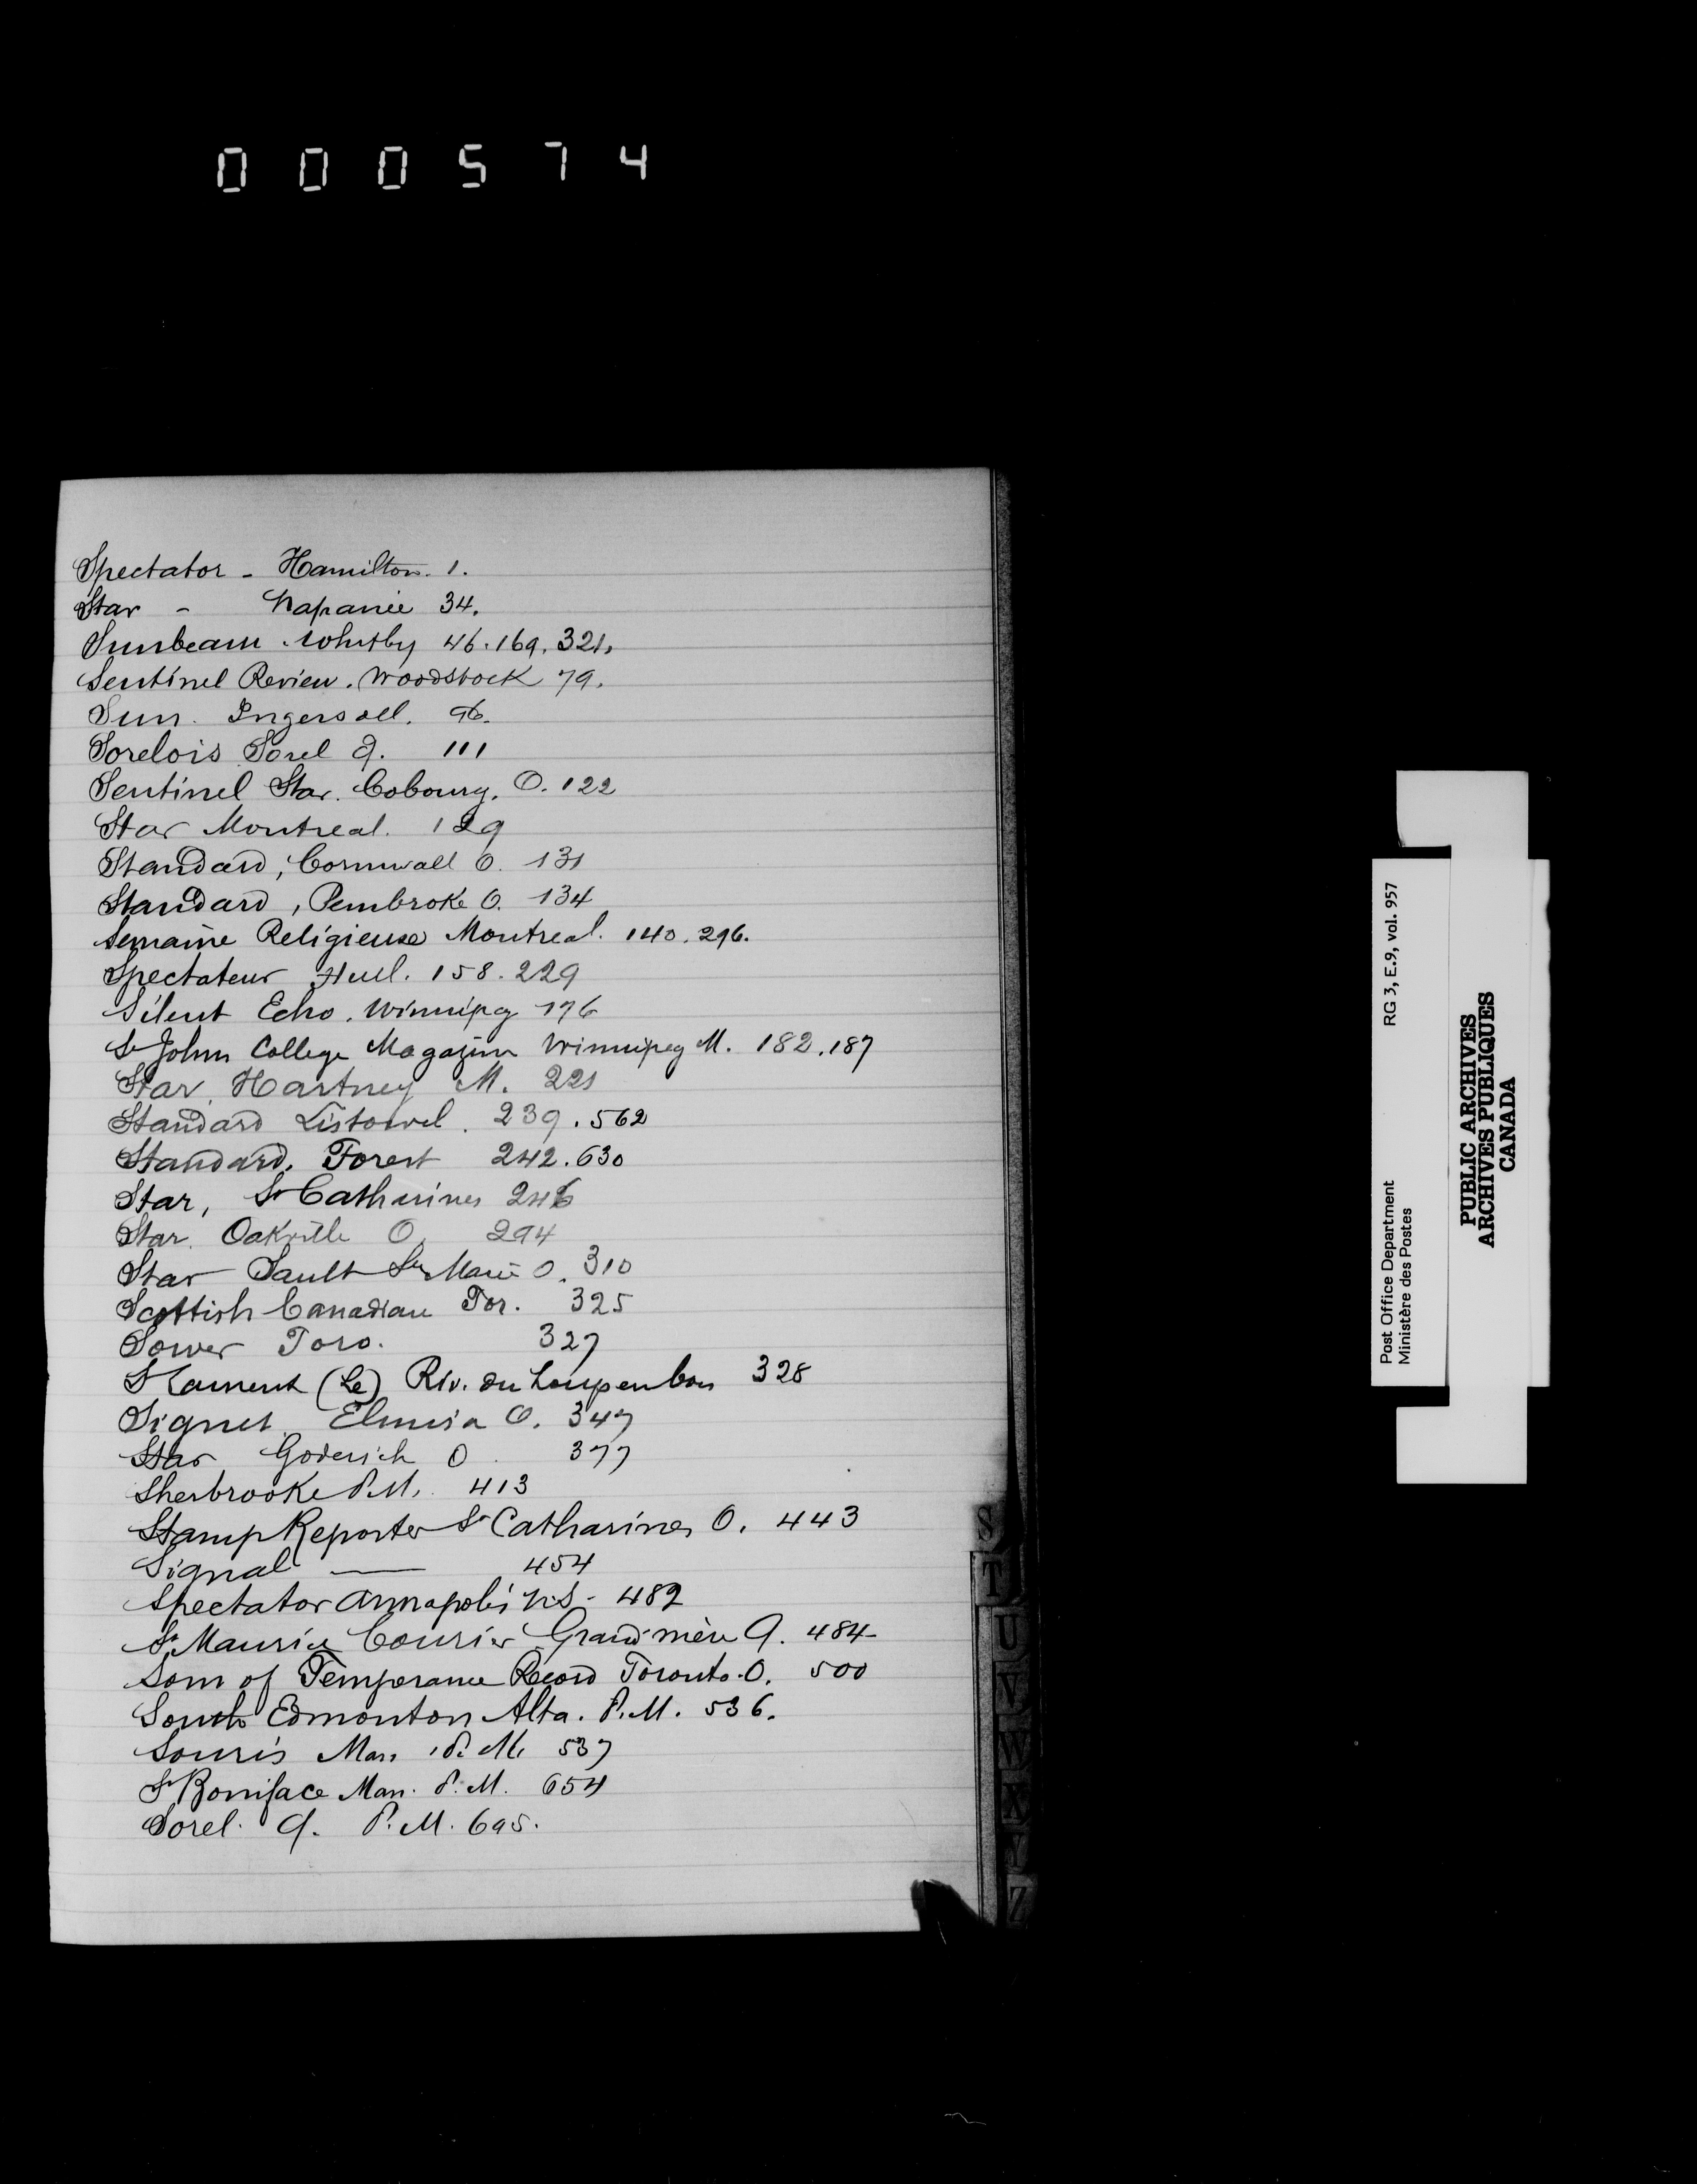 000574
Spectator - Hamilton. 1.
Star - Napanee 34.
Sunbeam. Whitby 46.169.321.
Sentinel Review. Woodstock 79.
Sun. Ingersoll. 96.
Sorelois Sorel Q. 111
Sentinel Star. Cobourg. O. 122
Star Montreal. 129
Standard, Cornwall O. 131
Standard, Pembroke O. 134
Semaine Religieuse Montreal. 140.296.
Spectateur Hull. 158.229
Silent Echo. Winnipeg 176
St John College Magazine Winnipeg M. 182.187
Star. Hartney M. 221
Standard Listowel. 239.562
Standard. Forest 242.630
Star, St Catharines 246
Star. Oakville O. 294
Star Sault Ste Marie O. 310
Scottish Canadian Tor. 325
Sower Toro. 327
St Laurent (Le) Riv. du Loup en bas 328
Signet Elmira O. 347
Star Goderich O 377
Sherbrooke P.M. 413
Stamp Reporter St Catharines O. 443
Signal — 454
Spectator Annapolis N.S - 482
St Maurice Courier Grand'mère Q. 484
Sons of Temperance Record Toronto. O. 500
South Edmonton Alta. P.M. 536.
Souris Man. P.M. 537
St Boniface Man. P.M. 654
Sorel. Q. P.M. 695.
S
T
U
V
W
X
Y
Z
Post Office Department
Ministère des Postes
RG 3, E.9, vol. 957
PUBLIC ARCHIVES
ARCHIVES PUBLIQUES
CANADA